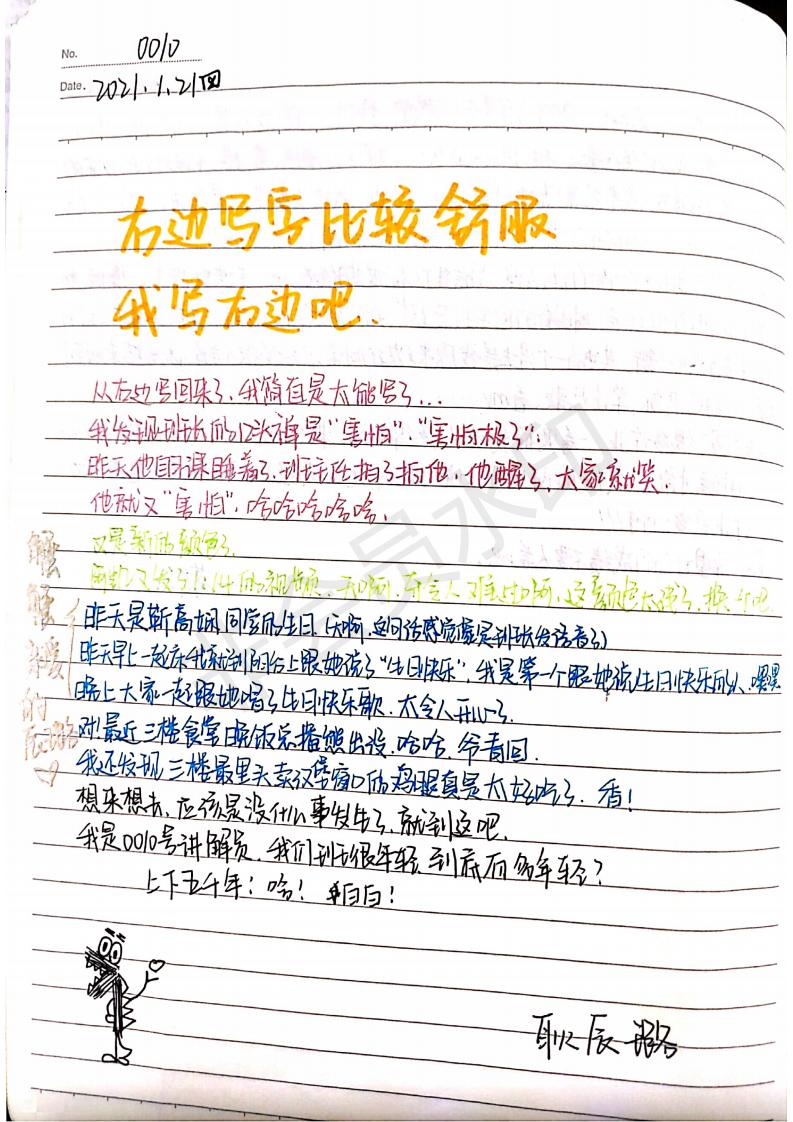 No. 0010
Date. 2021.1.21 四
右边写字比较舒服
我写右边吧.
从右边写回来了,我简直是太能写了...
我发现班长的口头禅是“害怕”.“害怕极了”.
昨天他自习课睡着了,班主任拍了拍他,他醒了,大家就笑.
他就又“害怕”.哈哈哈哈哈.
又是新的颜色了.
又发了1:14的视频,天啊,太令人难过啊,这颜色太浅了,换个吧
昨天是靳高娴同学的生日.(天啊,这句话感觉像是班长发语音了)
昨天早上一起床我就到阳台上跟她说了“生日快乐”,我是第一个跟她说生日快乐的人.嘿嘿
晚上大家一起跟她唱了生日快乐歌.太令人开心了.
对!最近三楼食堂晚饭总播熊出没,哈哈,爷青回.
我还发现三楼最里头卖汉堡窗口的鸡腿真是太好吃了.香!
想来想去,应该是没什么事发生了,就到这吧.
我是0010号讲解员,我们班很年轻,到底有多年轻?
上下五千年!哈!拜白!
亲爱的
辰璐
耿辰璐
非会员水印